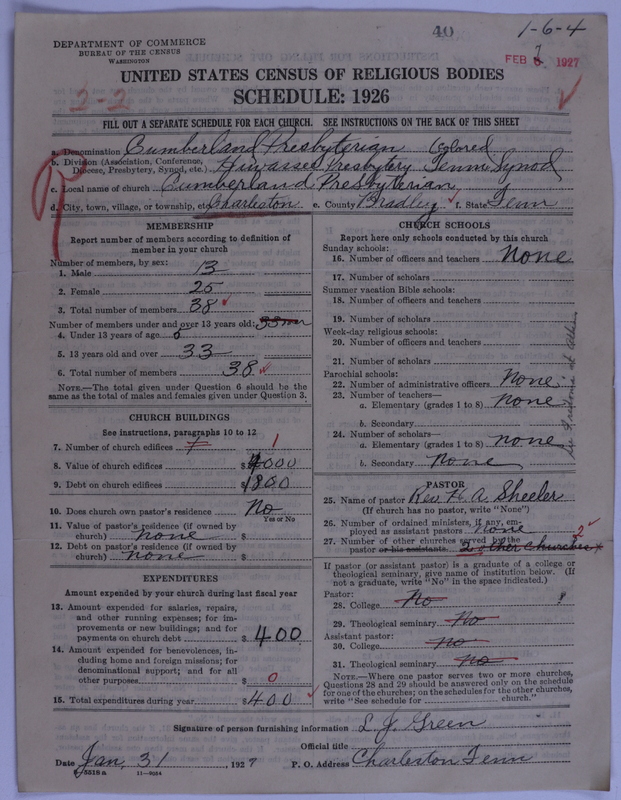 40
1-6-4
DEPARTMENT OF COMMERCE
BUREAU OF THE CENSUS
WASHINGTON
FEB 7 1927
UNITED STATES CENSUS OF RELIGIOUS BODIES
SCHEDULE: 1926
2-2
FILL OUT A SEPARATE SCHEDULE FOR EACH CHURCH. SEE INSTRUCTIONS ON THE BACK OF THIS SHEET
a. Denomination Cumberland Presbyterian Colored
b. Division (Association, Conference, Diocese, Presbytery, Synod, etc.) Hiwassee Presbytery Tenn Synod
c. Local name of church Cumberland Presbyterian
d. City, town, village, or township, etc. Charleston e. County Bradley f. State Tenn
MEMBERSHIP
Report number of members according to definition of
member in your church
Number of members, by sex:
1. Male 13
2. Female 25
3. Total number of members 38
Number of members under and over 13 years old:
4. Under 13 years of age 5
5. 13 years old and over 33
6. Total number of members 38
NOTE.—The total given under Question 6 should be the
same as the total of males and females given under Question 3.
CHURCH BUILDINGS
See instructions, paragraphs 10 to 12
7. Number of church edifices 1
8. Value of church edifices $4000
9. Debt on church edifices $1800
10. Does church own pastor's residence No
Yes or No
11. Value of pastor's residence (if owned by
church) none $
12. Debt on pastor's residence (if owned by
church) none $
EXPENDITURES
Amount expended by your church during last fiscal year
13. Amount expended for salaries, repairs,
and other running expenses; for im-
provements or new buildings; and for
payments on church debt $400
14. Amount expended for benevolences, in-
cluding home and foreign missions; for
denominational support; and for all
other purposes $0
15. Total expenditures during year $400
CHURCH SCHOOLS
Report here only schools conducted by this church
Sunday schools:
16. Number of officers and teachers None
17. Number of scholars
Summer vacation Bible schools:
18. Number of officers and teachers
19. Number of scholars
Week-day religious schools:
20. Number of officers and teachers
21. Number of scholars
Parochial schools:
22. Number of administrative officers None
23. Number of teachers—
a. Elementary (grades 1 to 8) none
b. Secondary
24. Number of scholars—
a. Elementary (grades 1 to 8) none
b. Secondary None
PASTOR
25. Name of pastor Rev. H. A. Sheeler
(If church has no pastor, write "None")
26. Number of ordained ministers, if any, em-
ployed as assistant pastors none
27. Number of other churches served by the 2
pastor or his assistants 2 other churches
If pastor (or assistant pastor) is a graduate of a college or
theological seminary, give name of institution below. (If
not a graduate, write "No" in the space indicated.)
Pastor:
28. College No
29. Theological seminary No
Assistant pastor:
30. College no
31. Theological seminary no
NOTE.—Where one pastor serves two or more churches,
Questions 28 and 29 should be answered only on the schedule
for one of the churches; on the schedules for the other churches,
write "See schedule for church."
Signature of person furnishing information L J. Green
Official title
Date Jan, 31, 1927 P. O. Address Charleston Tenn
5518 a 11-9054